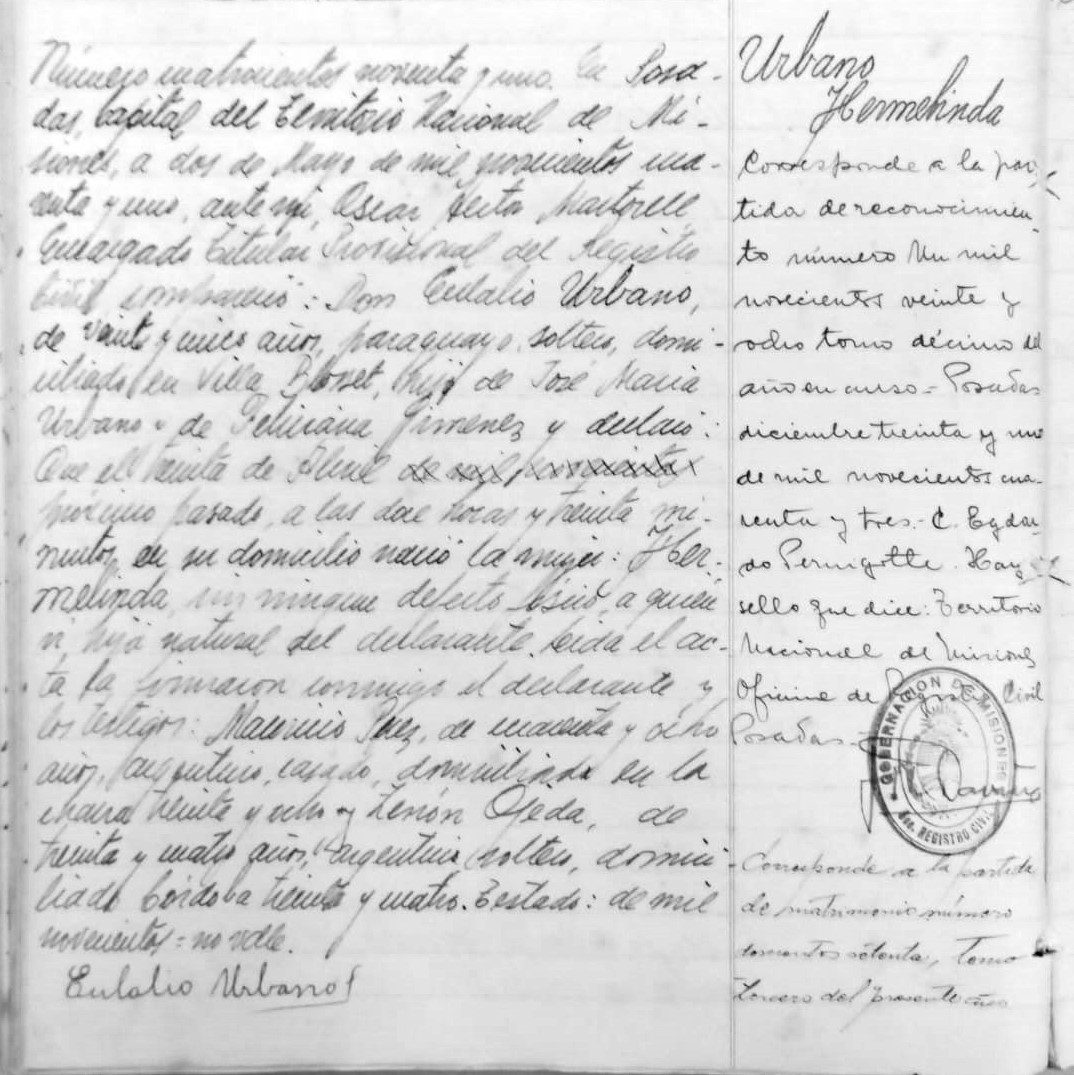 Número cuatrocientos noventa y uno. En Posa-
das, capital del Territorio Nacional de Mi-
siones, a dos de Mayo de mil novecientos cua-
renta y uno, ante mi, Oscar Martorell
Encargado Titular Provisional del Registro
Civil compareció: Don Eulalio Urbano,
de veinte y cinco años, paraguayo, soltero, domi-
ciliado en Villa Blosset, hijo de José Maria
Urbano y de Feliciana Jimenez y declaró:
Que el treinta de Abril de mil novecientos
próximo pasado, a las doce horas y treinta mi-
nutos, en su domicilio nació la mujer: Her-
melinda, sin ningun defecto físico, a quien
hija natural del declarante. Leida el ac-
ta la firmaron conmigo el declarante y
los testigos: Perez, de cuarenta y ocho
años, argentino, casado, domiciliado en la
chacra treinta y ocho y Zenón Ojeda, de
treinta y cuatro años, argentino, soltero, domici-
liado Córdoba treinta y cuatro. Testado: de mil
novecientos = no vale.
Eulalio Urbano
Urbano
Hermelinda
Corresponde a la par-
tida de reconocimien
to número Un mil
novecientos veinte y
ocho tomo décimo del
año en curso - Posadas
diciembre treinta y uno
de mil novecientos cua-
renta y tres.- C. Egdar-
do Pernigotte. Hay
sello que dice: Territorio
Nacional de Misiones
Oficina de Registro Civil
Posadas.-
GOBERNACION DE MISIONES
REGISTRO CIVIL
Corresponde a la partida
de matrimonio número
doscientos setenta, tomo
tercero del presente año